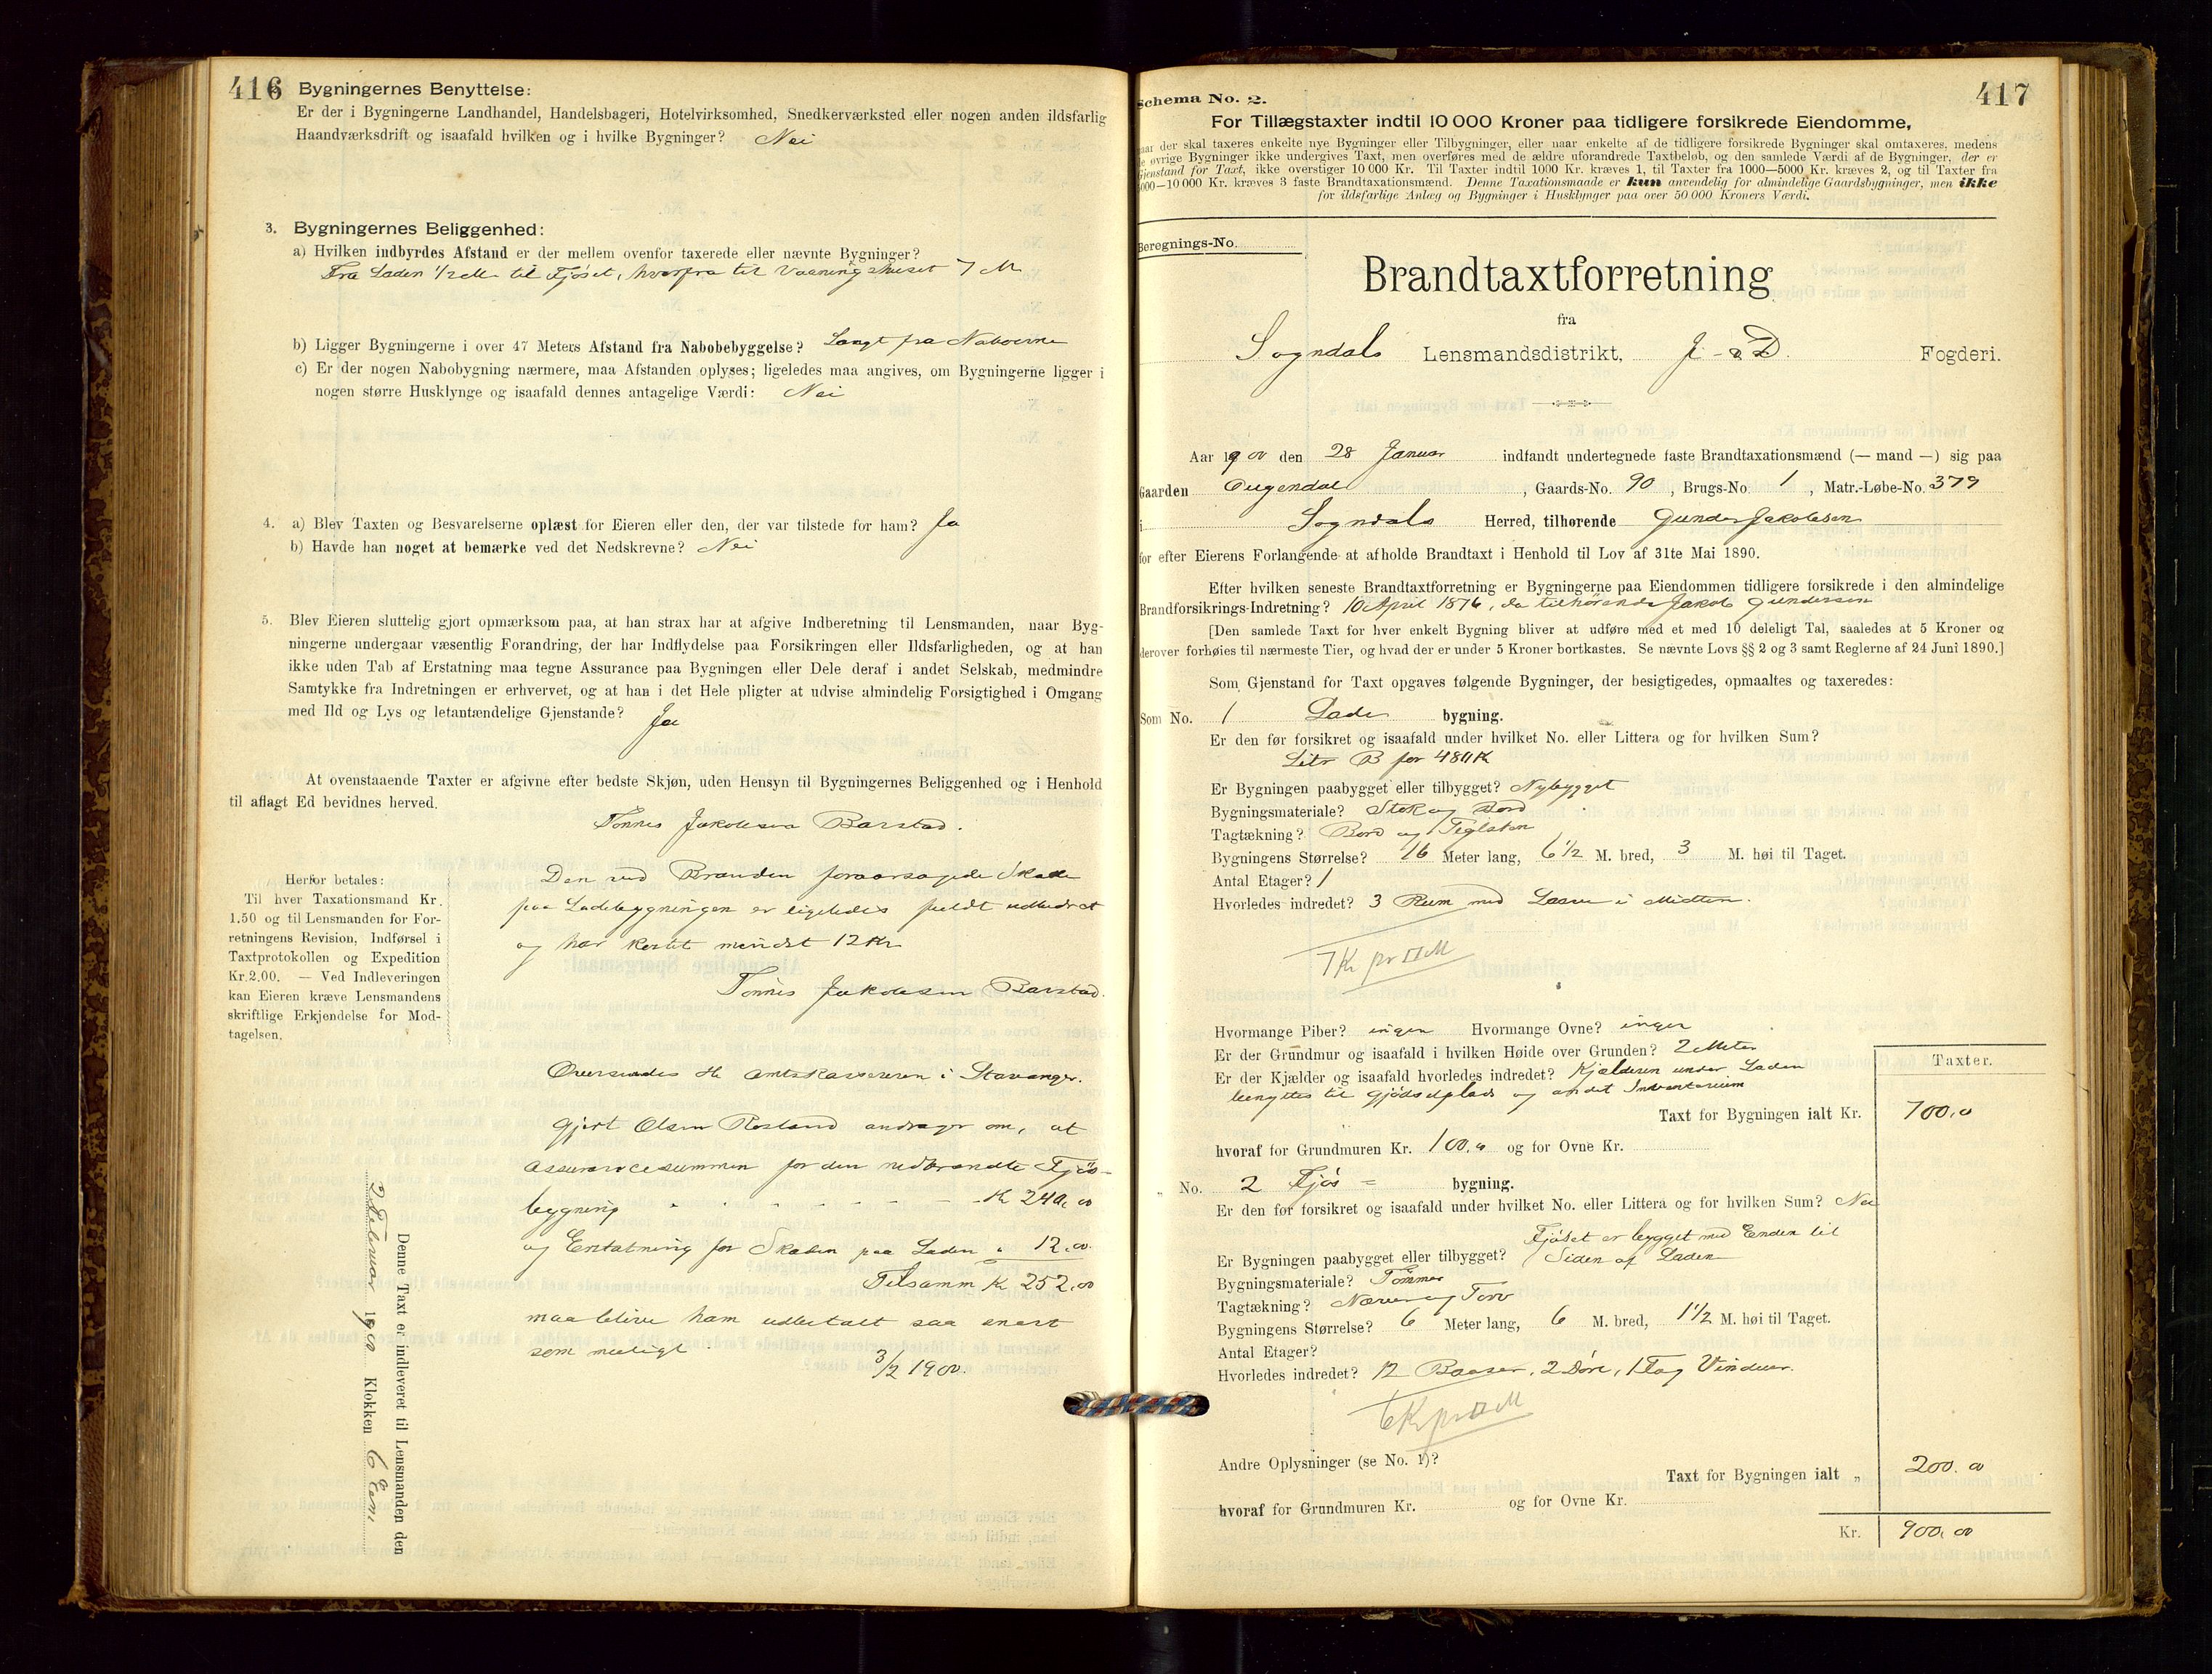 416
Bygningernes Benyttelse:
Er der i Bygningerne Landhandel, Handelsbageri, Hotelvirksomhed, Snedkerværksted eller nogen anden ildsfarlig
Haandværksdrift og isaafald hvilken og i hvilke Bygninger? Nei
3. Bygningernes Beliggenhed:
a) Hvilken indbyrdes Afstand er der mellem ovenfor taxerede eller nævnte Bygninger?
Fra Laden 1/2 M til Fjøset, hvorfra til Vaaningshuset 7 M
b) Ligger Bygningerne i over 47 Meters Afstand fra Nabobebyggelse? Langt fra Naboerne
c) Er der nogen Nabobygning nærmere, maa Afstanden oplyses; ligeledes maa angives, om Bygningerne ligger i
nogen større Husklynge og isaafald dennes antagelige Værdi: Nei
4. a) Blev Taxten og Besvarelserne oplæst for Eieren eller den, der var tilstede for ham? Ja
b) Havde han noget at bemærke ved det Nedskrevne? Nei
5. Blev Eieren sluttelig gjort opmærksom paa, at han strax har at afgive Indberetning til Lensmanden, naar Byg-
ningerne undergaar væsentlig Forandring, der har Indflydelse paa Forsikringen eller Ildsfarligheden, og at han
ikke uden Tab af Erstatning maa tegne Assurance paa Bygningen eller Dele deraf i andet Selskab, medmindre
Samtykke fra Indretningen er erhvervet, og at han i det Hele pligter at udvise almindelig Forsigtighed i Omgang
med Ild og Lys og letantændelige Gjenstande? Ja
At ovenstaaende Taxter er afgivne efter bedste Skjøn, uden Hensyn til Bygningernes Beliggenhed og i Henhold
til aflagt Ed bevidnes herved.
Tønnes Jakobsen Barstad.
Herfor betales:
Til hver Taxationsmand Kr.
1.50 og til Lensmanden for For-
retningens Revision, Indførsel i
Taxtprotokollen og Expedition
Kr. 2.00. — Ved Indleveringen
kan Eieren kræve Lensmandens
skriftlige Erkjendelse for Mod-
tagelsen.
Den ved Branden foraarsagede Skade
paa Ladebygningen er ligeledes fuldt udbedret
og har kostet mindst 12 Kr
Tønnes Jakobsen Barstad.
Oversendes Hr Amtskassereren i Stavanger.
Gjert Olsen Rosland andrager om, at
assurancesummen for den nedbrændte Fjøs-
bygning - - - - - - K 240,00
og Erstatning for Skaden paa Laden " 12,00
Tilsamm K 252,00
maa blive ham udbetalt saa snart
som muligt.
3/2 1900.
Denne Taxt er indleveret til Lensmanden den
2 Februar 1900 Klokken 6 Em.
417
Schema No. 2.
For Tillægstaxter indtil 10 000 Kroner paa tidligere forsikrede Eiendomme,
naar der skal taxeres enkelte nye Bygninger eller Tilbygninger, eller naar enkelte af de tidligere forsikrede Bygninger skal omtaxeres, medens
de øvrige Bygninger ikke undergives Taxt, men overføres med de ældre uforandrede Taxtbeløb, og den samlede Værdi af de Bygninger, der er
Gjenstand for Taxt, ikke overstiger 10 000 Kr. Til Taxter indtil 1000 Kr. kræves 1, til Taxter fra 1000—5000 Kr. kræves 2, og til Taxter fra
5000—10 000 Kr. kræves 3 faste Brandtaxationsmænd. Denne Taxationsmaade er kun anvendelig for almindelige Gaardsbygninger, men ikke
for ildsfarlige Anlæg og Bygninger i Husklynger paa over 50 000 Kroners Værdi.
Beregnings-No.
Brandtaxtforretning
fra
Sogndals Lensmandsdistrikt, J - & D. Fogderi.
Aar 1900 den 28 Januar indfandt undertegnede faste Brandtaxationsmænd (— mand —) sig paa
Gaarden Ougendal, Gaards-No. 90, Brugs-No. 1, Matr.-Løbe-No. 379
i Sogndals Herred, tilhørende Gunder Jakobsen
for efter Eierens Forlangende at afholde Brandtaxt i Henhold til Lov af 31te Mai 1890.
Efter hvilken seneste Brandtaxtforretning er Bygningerne paa Eiendommen tidligere forsikrede i den almindelige
Brandforsikrings-Indretning? 10 April 1876, da tilhørende Jakob Gundersen
[Den samlede Taxt for hver enkelt Bygning bliver at udføre med et med 10 deleligt Tal, saaledes at 5 Kroner og
derover forhøies til nærmeste Tier, og hvad der er under 5 Kroner bortkastes. Se nævnte Lovs §§ 2 og 3 samt Reglerne af 24 Juni 1890.]
Som Gjenstand for Taxt opgaves følgende Bygninger, der besigtigedes, opmaaltes og taxeredes:
Som No. 1 Lade bygning.
Er den før forsikret og isaafald under hvilket No. eller Littera og for hvilken Sum?
Litr B for 480 K
Er Bygningen paabygget eller tilbygget? Nybygget
Bygningsmateriale? Stok og Bord
Tagtækning? Bord og Teglsten
Bygningens Størrelse? 16 Meter lang, 6 1/2 M. bred, 3 M. høi til Taget.
Antal Etager? 1
Hvorledes indredet? 3 Rum med Laave i Midten.
7 Kr pr □ M
Hvormange Piber? ingen Hvormange Ovne? ingen
Er der Grundmur og isaafald i hvilken Høide over Grunden? 2 Meter
Er der Kjælder og isaafald hvorledes indredet? Kjælderen under Laden
benyttes til Gjødselplads og andet Inventarium
Taxter.
Taxt for Bygningen ialt Kr. 700,00
hvoraf for Grundmuren Kr. 100,00 og for Ovne Kr.
" No. 2 Fjøs = bygning.
Er den før forsikret og isaafald under hvilket No. eller Littera og for hvilken Sum? Nei
Fjøset er bygget med Enden til
Er Bygningen paabygget eller tilbygget? Siden af Laden
Bygningsmateriale? Tømmer
Tagtækning? Næver og Torv
Bygningens Størrelse? 6 Meter lang, 6 M. bred, 1 1/2 M. høi til Taget.
Antal Etager?
Hvorledes indredet? 12 Baaser, 2 Døre, 1 Fag Vinduer.
6 Kr pr □ M
Andre Oplysninger (se No. 1)?
Taxt for Bygningen ialt " 200,00
hvoraf for Grundmuren Kr. og for Ovne Kr.
Kr. 900,00